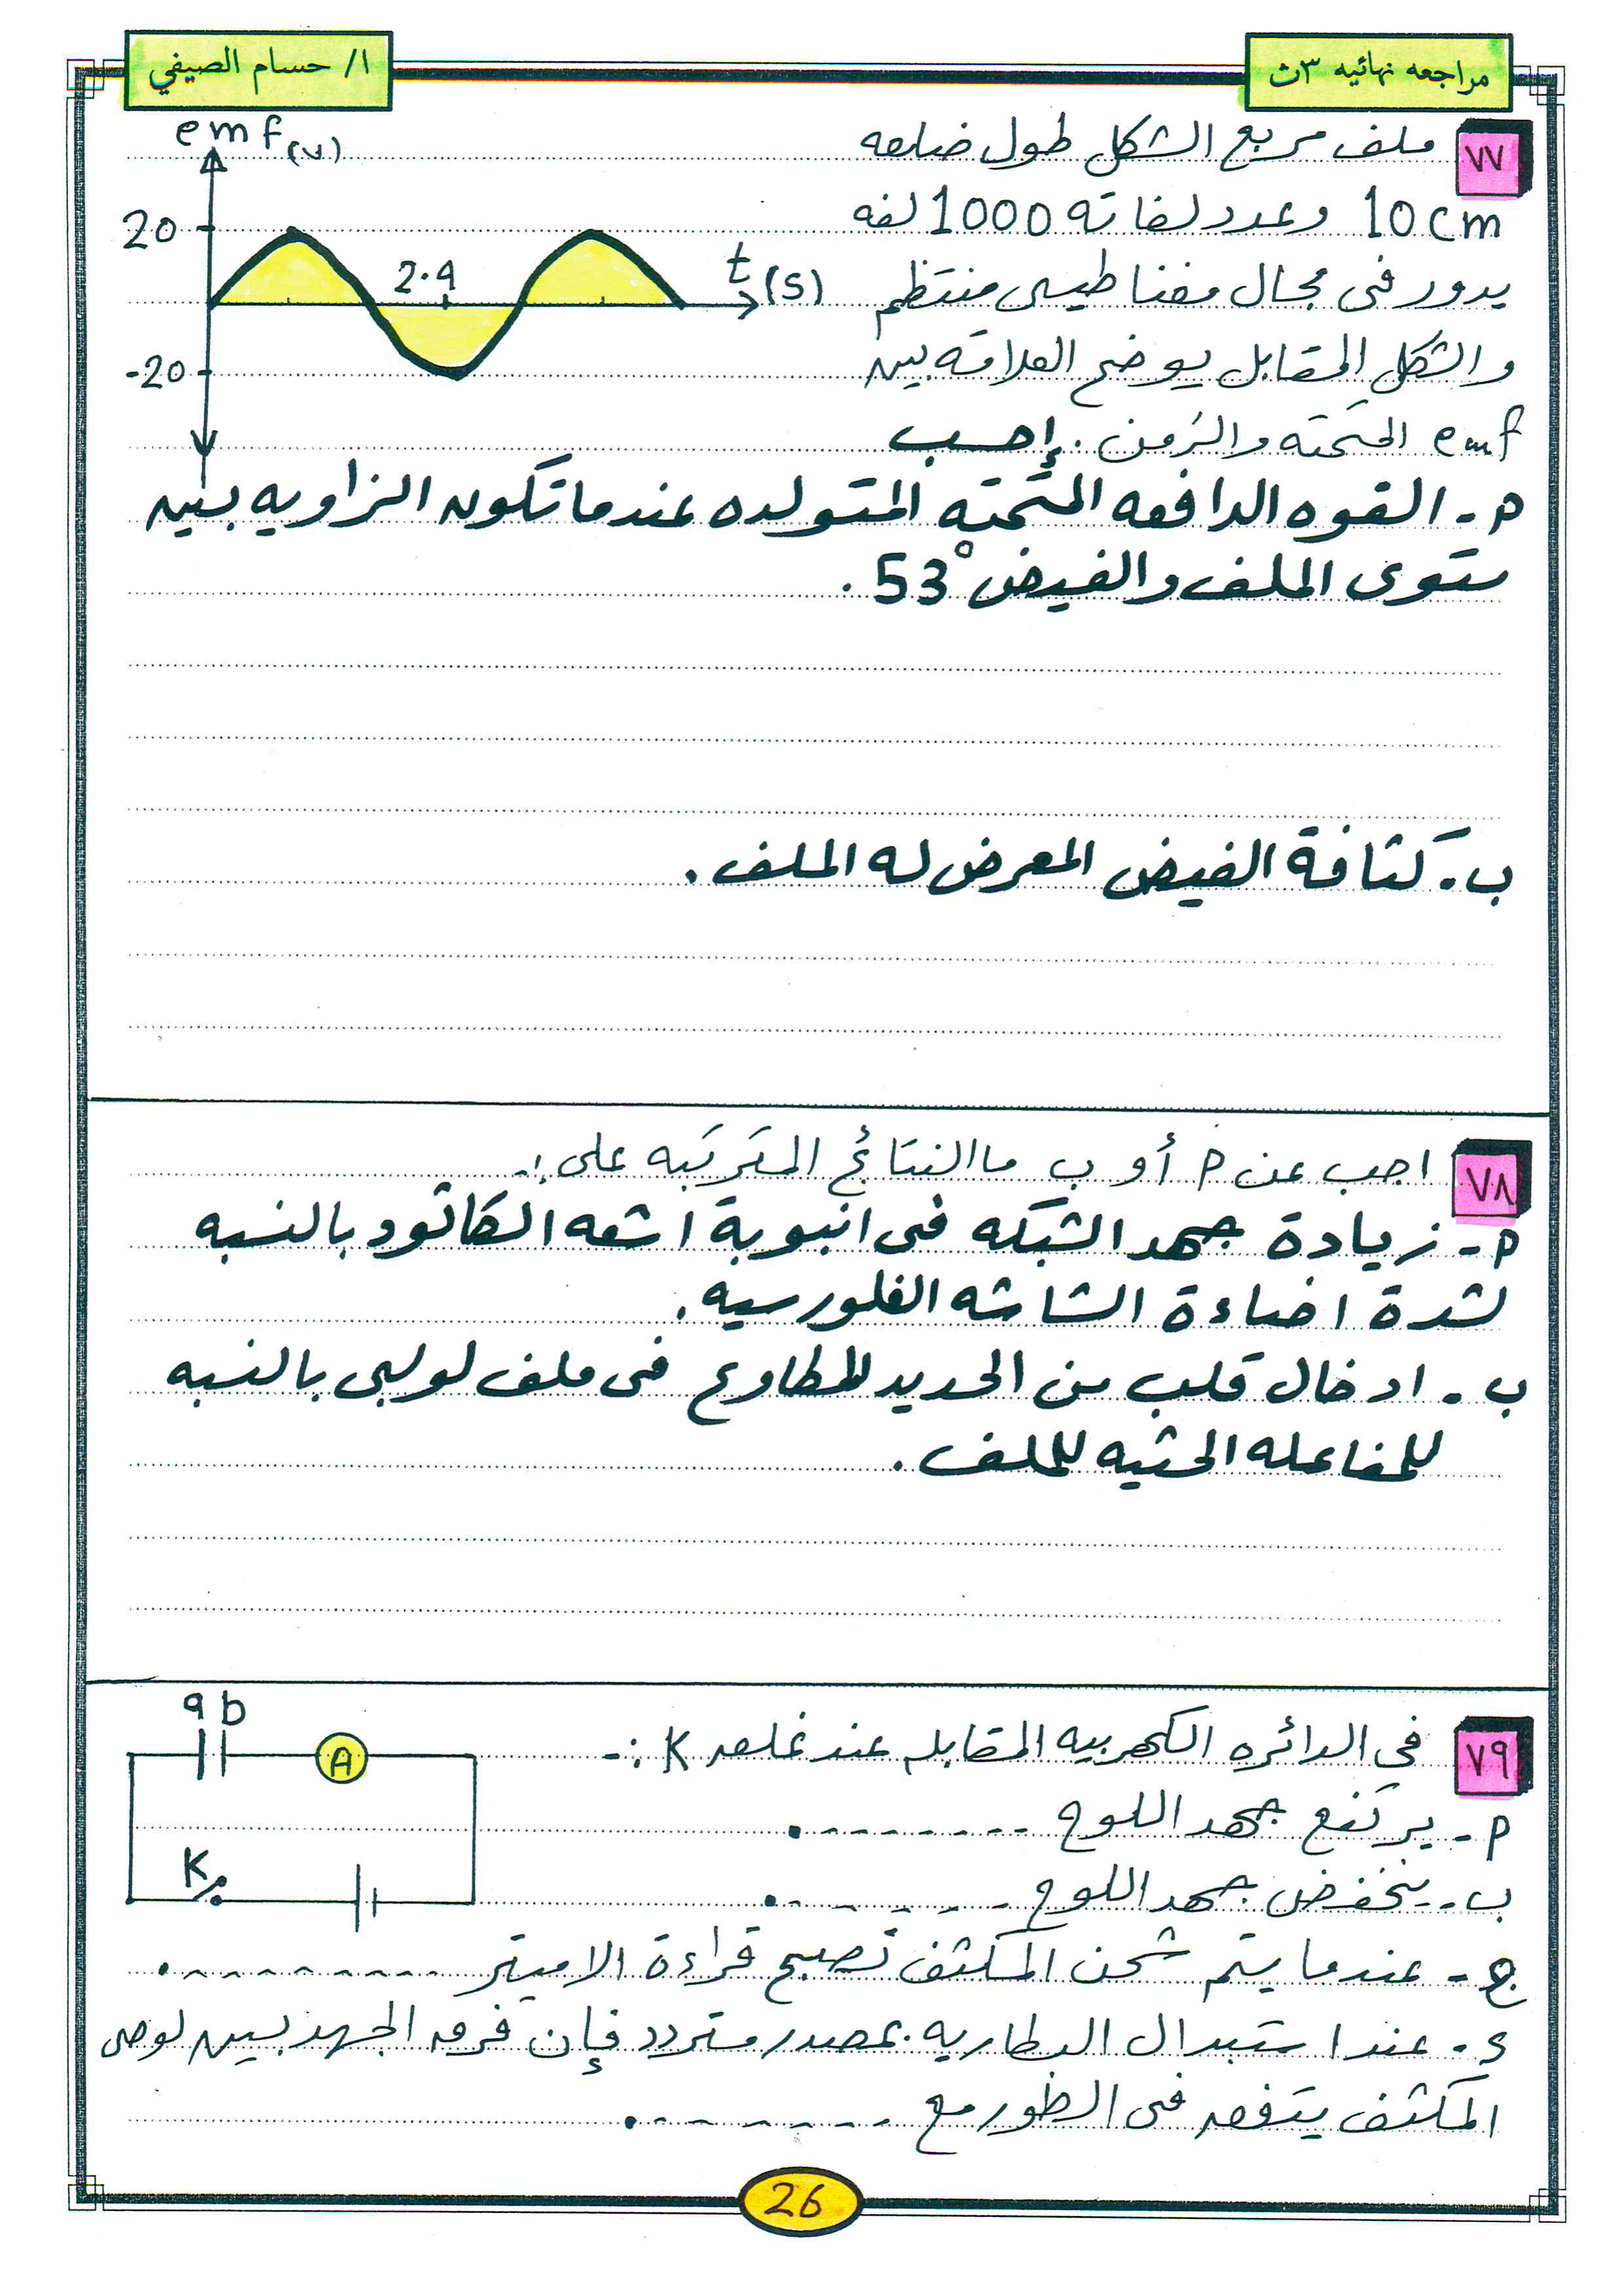 مراجعه نهائيه ٣ث
ا/ حسام الصيفي
٧٧
ملف مربع الشكل طول ضلعه
10cm وعدد لفاته 1000 لفه
يدور فى مجال مغناطيسى منتظم
والشكل المقابل يوضح العلاقه بين
emf المستحثه والزمن . إحسب
emf (v)
20
2.9
t (s)
-20
م - القوه الدافعه المستحثه المتولده عندما تكون الزاويه بين
مستوى الملف والفيض 53° .
ب - كثافة الفيض المعرض له الملف .
٧٨
اجب عن م أو ب ما النتائج المترتبه على :-
م - زيادة جهد الشبكه فى انبوبة اشعه الكاثود بالنسبه
لشدة اضاءة الشاشه الفلورسيه .
ب - ادخال قلب من الحديد المطاوع فى ملف لولبى بالنسبه
للمفاعله الحثيه للملف .
٧٩
فى الدائره الكهربيه المقابله عند غلق K :-
م - يرتفع جهد اللوح --------.
ب - ينخفض جهد اللوح --------.
ج - عندما يتم شحن المكثف تصبح قراءة الاميتر ---------.
د - عند استبدال البطاريه بمصدر متردد فإن فرق الجهد بين لوحى
المكثف يتفق فى الطور مع --------.
a b
A
K
26